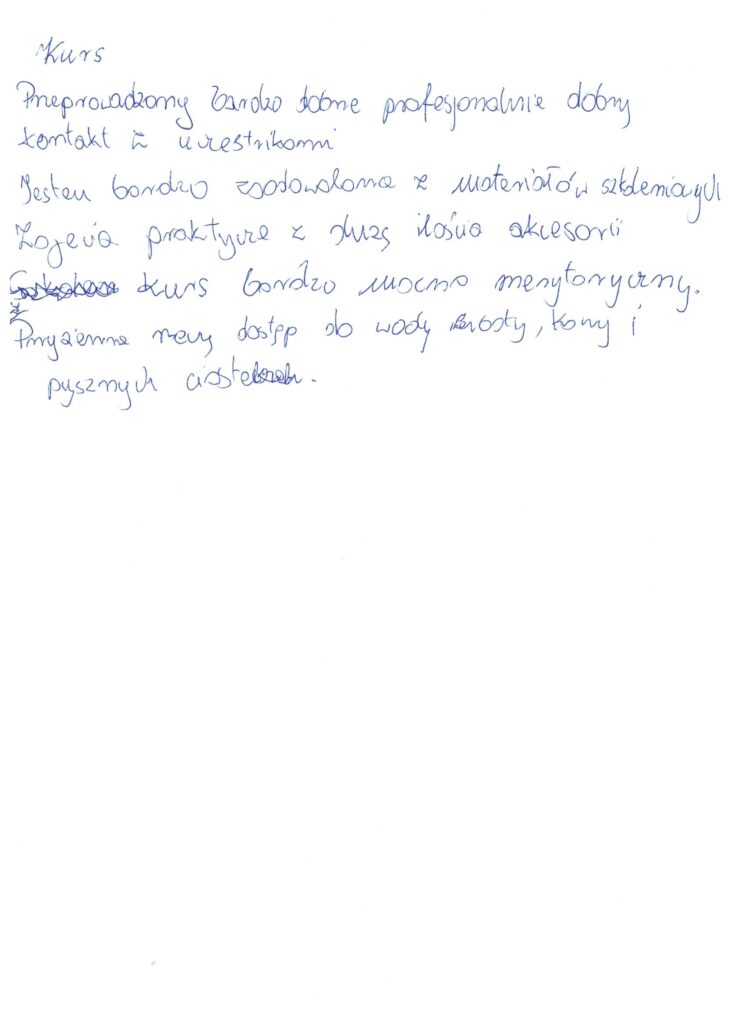 Kurs
Przeprowadzony bardzo dobrze profesjonalnie dobry
kontakt z uczestnikami
Jestem bardzo zadowolona z materiałów szkoleniowych
Zajęcia praktyczne z dużą ilościa akcesorii
kurs bardzo mocno merytoryczny.
Przyziemne rzeczy dostęp do wody, kawy i
pysznych ciastek.